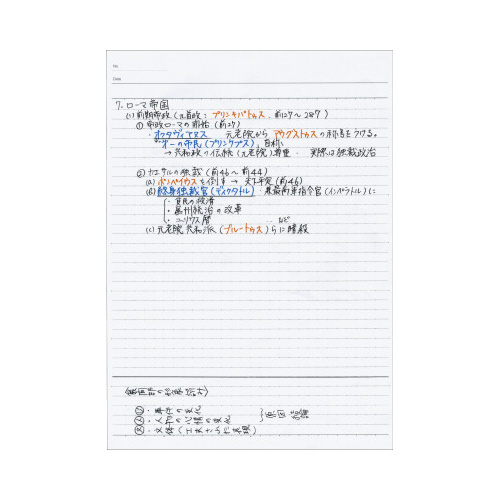 No.
Date
7. ローマ帝国
(1) 前期帝政 (元首政: プリンキパトゥス. 前27〜287)
① 帝政ローマの開始 (前27)
オクタヴィアヌス 元老院から アウグストゥス の称号をうける。
"第一の市民 (プリンケプス)" 自称
→ 共和政の伝統 (元老院) 尊重. 実際は独裁政治
② カエサルの独裁 (前46〜前44)
(a) ポンペイウス を倒す → 天下平定 (前46)
(b) 終身独裁官 (ディクタトル)・最高軍指令官 (インペラトル) に
・貧民の救済
・属州統治の改革
・ユリウス暦 …など
(c) 元老院 共和派 (ブルートゥス) らに暗殺
・事件の変化
・人物の心情の変化
・文体 (工夫された表現)